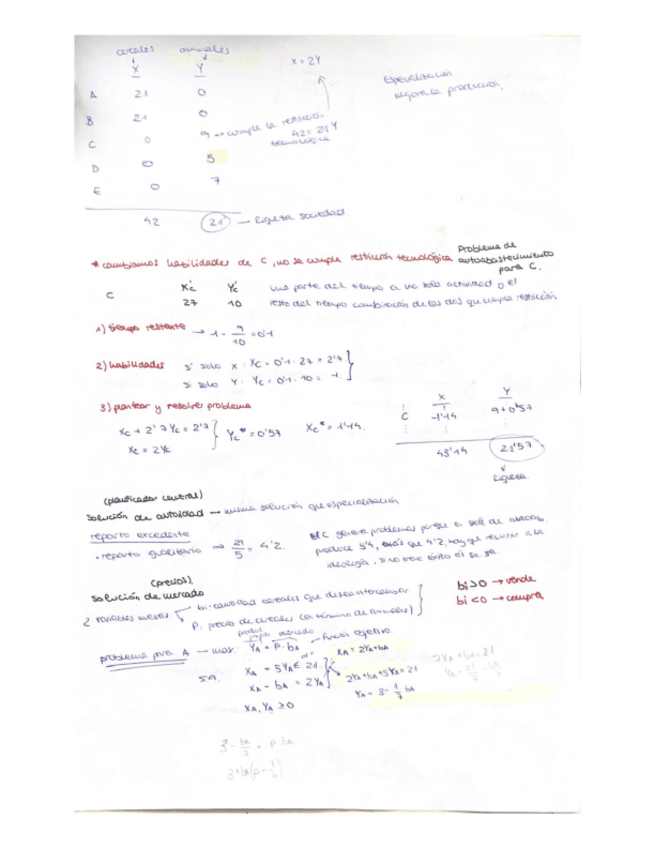 cereales animales
X Y
X = 2Y
A 21 0
Especialización
mejora la producción.
B 21 0
C 0 9 → cumple la restricción
tecnológica
42 = 21 Y
D 0 5
E 0 7
42 21 → Riqueza sociedad.
* cambiamos habilidades de C, no se cumple restricción tecnológica
Problema de
autoabastecimiento
para C.
C Xc' Yc'
27 10
una parte del tiempo a una sola actividad y el
resto del tiempo combinación de las dos que cumpla restricción
1) tiempo restante → 1 - 9/10 = 0'1
2) habilidades si solo X · Xc = 0'1 · 27 = 2'7
si solo Y · Yc = 0'1 · 10 = 1
3) plantear y resolver problema
Xc + 2'7 Yc = 2'7
Xc = 2Yc
Yc* = 0'57 Xc* = 1'14.
X Y
C 1'14 9+0'57
43'14 21'57
Riqueza.
(planificador central)
Solución de autoridad → misma solución que especialización
reparto excedente
· reparto igualitario → 21/5 = 4'2.
El C genera problemas porque a
produce 5'4, más que 4'2, hay que recurrir a la
ideología, si no tiene éxito él se va.
(precios)
Solución de mercado
2 variables nuevas
bi: cantidad cereales que desea intercambiar
P: precio de cereales (en término de animales)
bi > 0 → vende
bi < 0 → compra
produc propia mercado
problema para A → max. YA + P · bA → función objetivo.
s.a. XA + 5YA ≤ 21
XA - bA = 2YA
XA, YA ≥ 0
XA = 2YA + bA
2YA + bA + 5YA = 21
YA = 3 - 1/7 bA
2YA + bA = 21
3 - bA/7 + P · bA
3 + bA(P - 1/7)